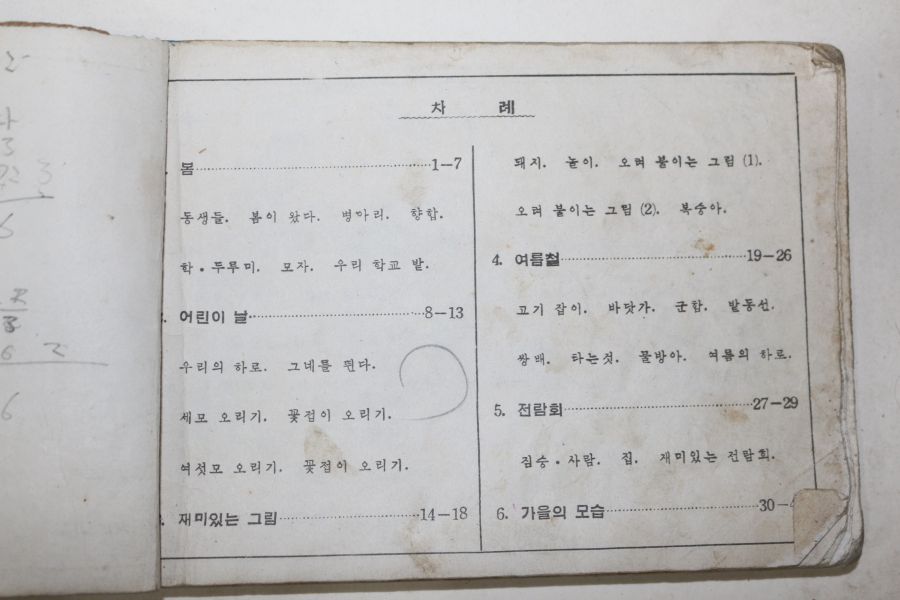 차 례
봄 1—7
동생들. 봄이 왔다. 병아리. 향합.
학·두루미. 모자. 우리 학교 밭.
어린이 날 8—13
우리의 하로. 그네를 뛴다.
세모 오리기. 꽃접이 오리기.
여섯모 오리기. 꽃접이 오리기.
재미있는 그림 14—18
돼지. 놀이. 오려 붙이는 그림 (1).
오려 붙이는 그림 (2). 복숭아.
4. 여름철 19—26
고기 잡이. 바닷가. 군함. 발동선.
쌍배. 타는것. 물방아. 여름의 하로.
5. 전람회 27—29
짐승·사람. 집. 재미있는 전람회.
6. 가을의 모습 30—